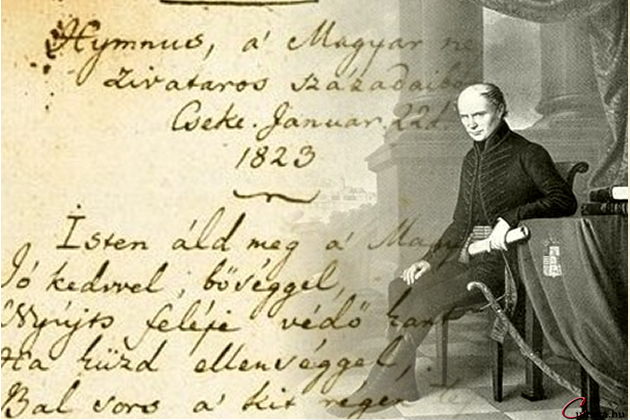 Hymnus, a' Magyar ne
Zivataros századaibó
Cseke. Januar. 22d.
1823
Isten áld meg a' Magy
Jó kedvvel, bőséggel,
Nyújts feléje védő kart
Ha küzd ellenséggel,
Bal sors a' kit régen té